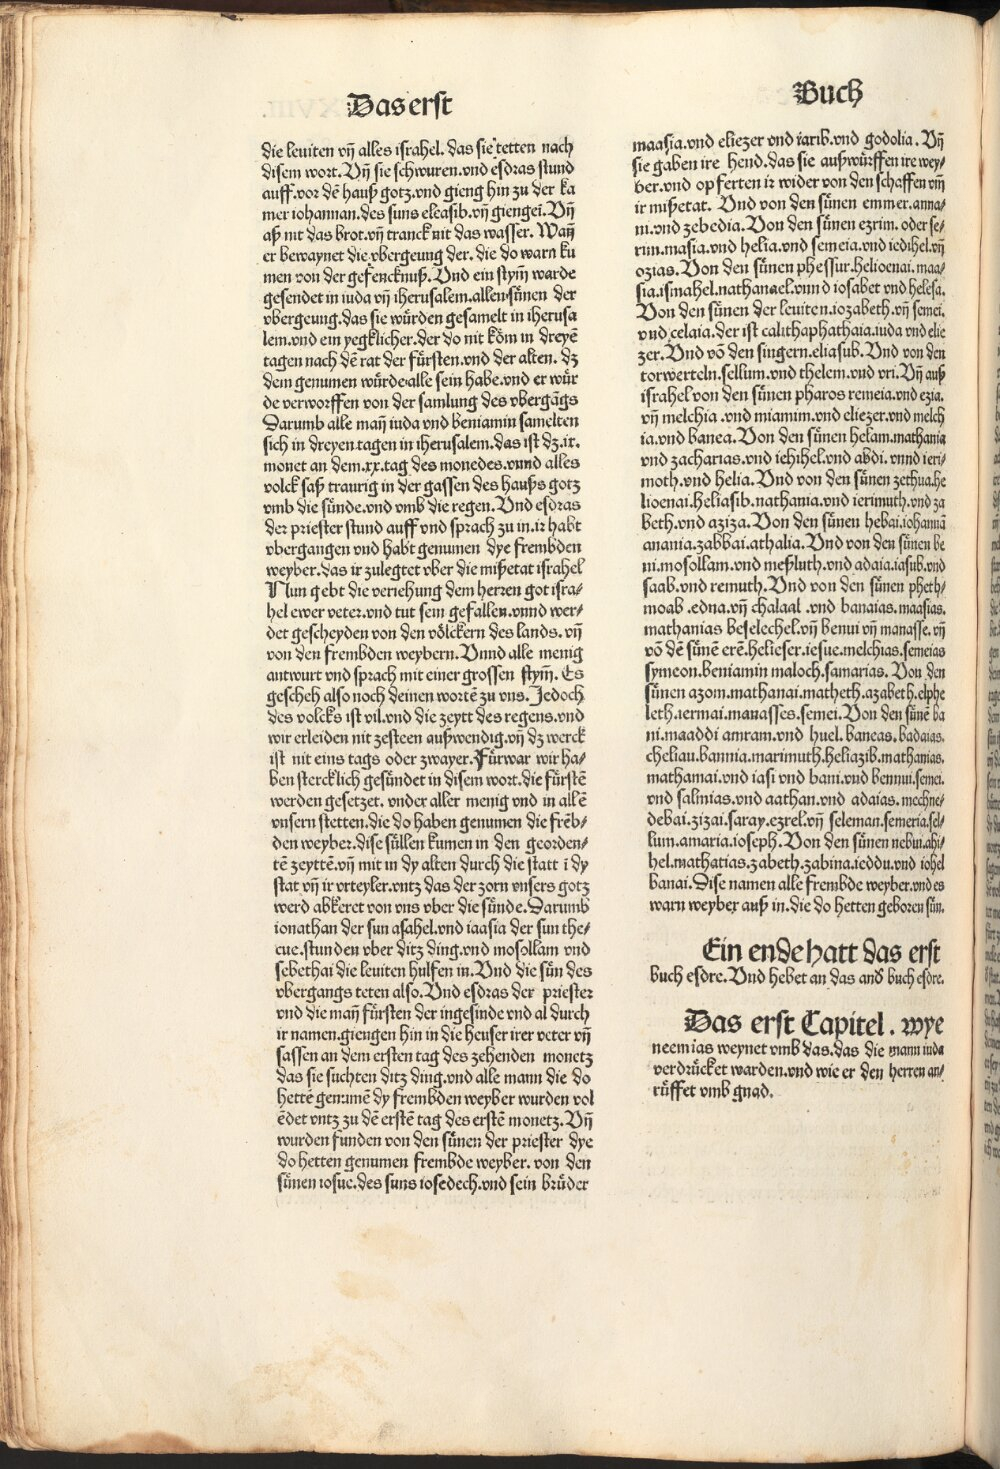 Das erst
Buch
die leuiten vñ alles israhel. das sie tetten nach
disem wort. Vñ sie schwuren.vnd esdras stund
auff.vor dē hauß gotz.vnd gieng hin zu der ka
mer iohannan.des suns eleasib.vñ giengeī. Vñ
aß nit das brot.vñ tranck nit das wasser. Wañ
er bewaynet die vbergeung der. die do warn ku
men von der gefencknuß. Vnd ein stym̄ warde
gesendet in iuda vñ iherusalem.allen sünen der
vbergeung.das sie würden gesamelt in iherusa
lem.vnd ein yegklicher.der do nit köm in dreyē
tagen nach dē rat der fürsten.vnd der alten. dz
dem genumen würde alle sein habe.vnd er wür
de verworffen von der samlung des vbergāgs
Darumb alle mañ iuda vnd beniamin samelten
sich in dreyen tagen in iherusalem.das ist dz.ix.
monet an dem.xx.tag des monedes.vnnd alles
volck saß traurig in der gassen des hauß gotz
vmb die sünde.vnd vmb die regen. Vnd esdras
der priester stund auff vnd sprach zu in.ir habt
vbergangen vnd habt genumen dye frembden
weyber.das ir zulegtet vber die mißetat israhel
Nun gebt die veriehung dem herzen got isra⸗
hel ewer veter.vnd tut sein gefallen.vnnd wer⸗
det gescheyden von den völckern des lands. vñ
von den frembden weybern. Vnnd alle menig
antwurt vnd sprach mit einer grossen stym̄. Es
gescheh also noch deinen wortē zu vns. Jedoch
des volcks ist vil.vnd die zeytt des regens.vnd
wir erleiden nit zesteen außwendig.vñ dz werck
ist nit eins tags oder zwayer. Fürwar wir ha⸗
ben stercklich gesündet in disem wort.die fürstē
werden gesetzet. vnder aller menig vnd in allē
vnsern stetten.die do haben genumen die frēb⸗
den weyber.dise süllen kumen in den georden⸗
tē zeyttē.vñ mit in dy alten durch die statt ī dy
stat vñ ir vrteyler.vntz das der zorn vnsers gotz
werd abkeret von vns vber die sünde. Darumb
ionathan der sun asahel.vnd iaasia der sun the⸗
cue.stunden vber ditz ding.vnd mosollam vnd
sebethai die leuiten hulfen in. Vnd die sün des
vbergangs teten also. Vnd esdras der priester
vnd die mañ fürsten der ingesinde vnd al durch
ir namen.giengen hin in die heuser irer veter vñ
sassen an dem ersten tag des zehenden monetz
das sie suchten ditz ding.vnd alle mann die do
hettē genumē dy frembden weyber wurden vol
ēdet vntz zu dē erstē tag des erstē monetz. Vñ
wurden funden von den sünen der priester dye
do hetten genumen frembde weyber. von den
sünen iosue.des suns iosedech.vnd sein brüder
maasia.vnd eliezer vnd iarib.vnd godolia. Vñ
sie gaben ire hend.das sie außwürffen ire wey⸗
ber.vnd opferten ir wider von den schaffen vm̄
ir mißetat. Vnd von den sünen emmer.anna⸗
ni.vnd zebedia. Von den sünen ezrim. oder se⸗
rim.masia.vnd helia.vnd semeia.vnd iedihel.vñ
ozias. Von den sünen phessur.helioenai.maa⸗
sia.ismahel.nathanael.vnnd iosabet vnd helesa.
Von den sünen der leuiten.iozabeth.vñ semei.
vnd celaia.der ist calithaphathaia.iuda vnd elie
zer. Vnd vō den singern.eliasub. Vnd von den
torwerteln.sellum.vnd thelem.vnd vri. Vñ auß
israhel von den sünen pharos remeia.vnd ezia.
vñ melchia .vnd miamim.vnd eliezer.vnd melch
ia.vnd banea. Von den sünen helam.mathania
vnd zacharias.vnd iehihel.vnd abdi. vnnd ieri⸗
moth.vnd helia. Vnd von den sünen zethua.he
lioenai.heliasib.nathania.vnd ierimuth.vnd za
beth.vnd aziza. Von den sünen hebai.iohannā
anania.zabbai.athalia. Vnd von den sünen be
ni.mosollam.vnd meßluth.vnd adaia.iasub.vnd
saab.vnd remuth. Vnd von den sünen pheth⸗
moab .edna.vñ chalaal .vnd banaias.maasias.
mathanias beselechel.vñ benui vñ manasse. vñ
vō dē sünē erē.helieser.iesue.melchias.semeias
symeon.beniamin maloch.samarias. Von den
sünen azom.mathanai.matheth.azabeth.elphe
leth.iermai.manasses.semei. Von den sünē ba
ni.maaddi amram.vnd huel. baneas. badaias.
cheliau.bannia.marimuth.heliazib.mathanias.
mathamai.vnd iasi vnd bani.vnd bennui.semei.
vnd salmias.vnd aathan.vnd adaias. mechne⸗
debai.zizai.saray.ezrel.vñ seleman.semeria.sel⸗
lum.amaria.ioseph. Von den sünen nebui.ahi⸗
hel.mathatias.zabeth.zabina.ieddu.vnd iohel
banai. Dise namen alle frembde weyber.vnd es
warn weyber auß in.die do hetten geboren sün.
Ein ende hatt das erst
buch esdre. Vnd hebet an das and buch esdre.
Das erst Capitel . wye
neemias weynet vmb das.das die mann iuda
verdrücket warden.vnd wie er den herren an⸗
rüffet vmb gnad.